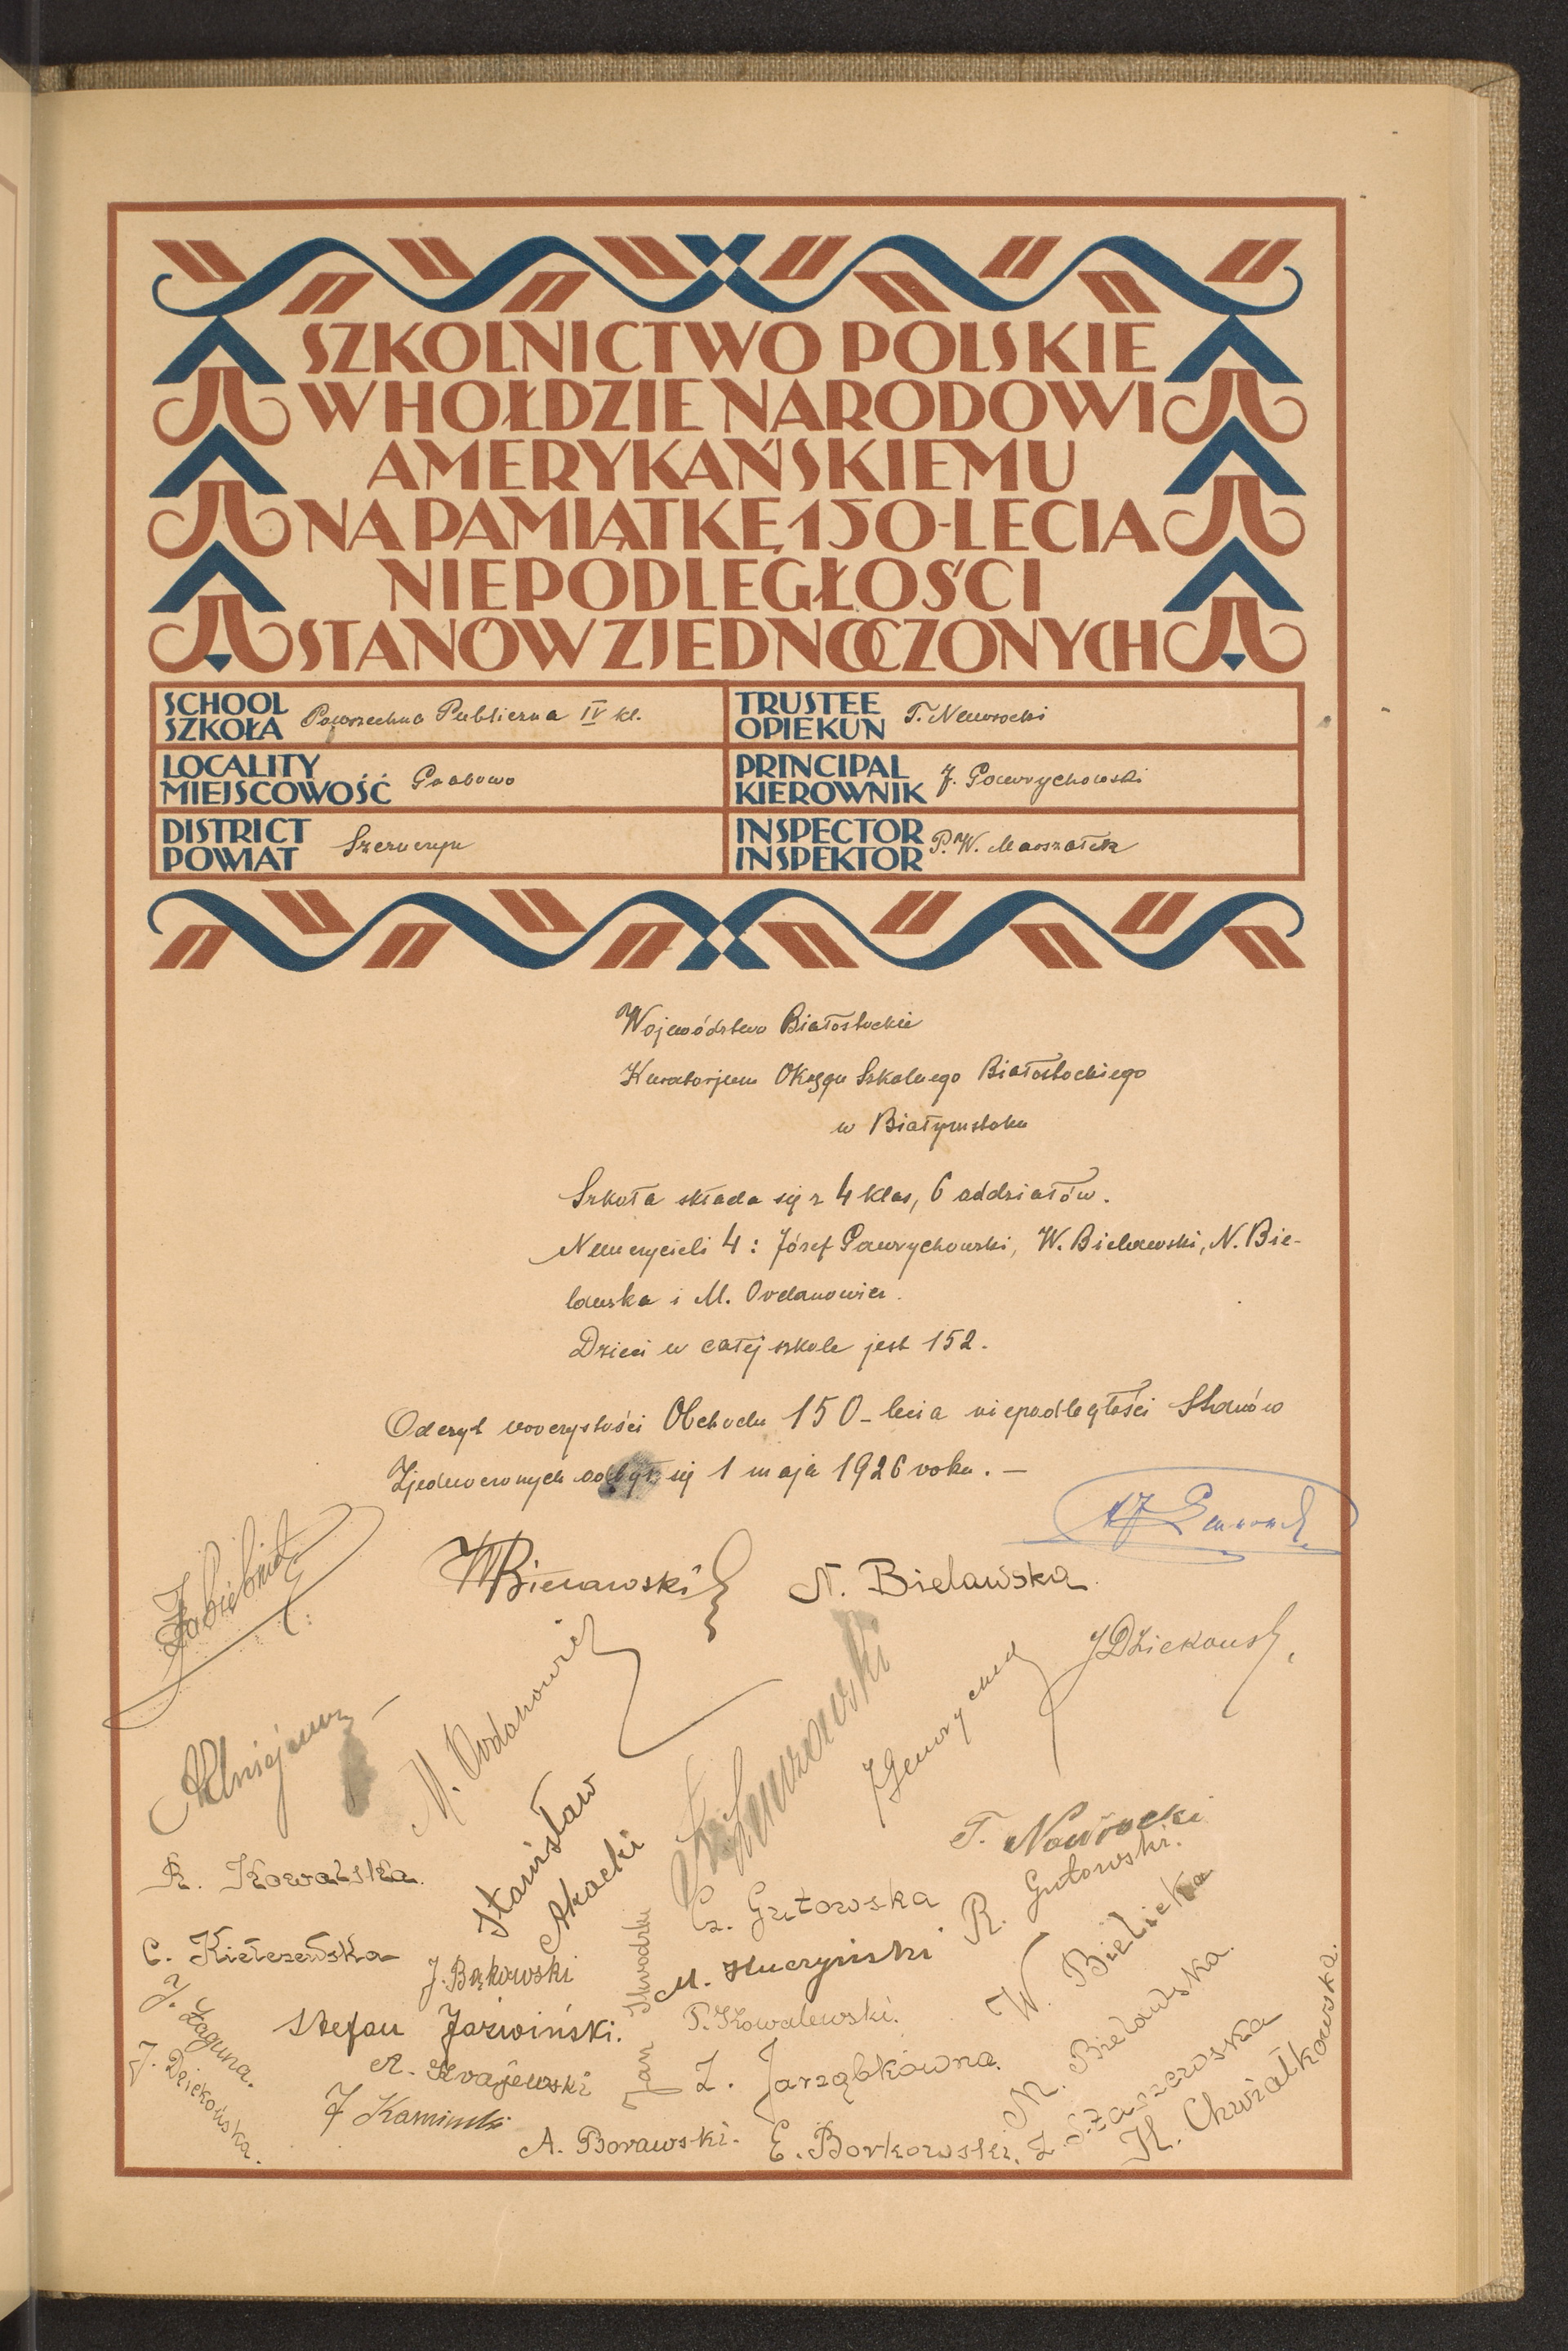 SZKOLNICTWO POLSKIE
W HOŁDZIE NARODOWI
AMERYKAŃSKIEMU
NA PAMIĄTKĘ 150-LECIA
NIEPODLEGŁOŚCI
STANÓW ZJEDNOCZONYCH
SCHOOL
SZKOŁA Powszechna Publiczna IV kl.
TRUSTEE
OPIEKUN T. Nawrocki
LOCALITY
MIEJSCOWOŚĆ Grabowo
PRINCIPAL
KIEROWNIK J. Gawrychowski
DISTRICT
POWIAT Szczuczyn
INSPECTOR
INSPEKTOR P. W. Marszałek
Województwo Białostockie
Kuratorjum Okręgu Szkolnego Białostockiego
w Białymstoku
Szkoła składa się z 4 klas, 6 oddziałów.
Nauczycieli 4: Józef Gawrychowski, W. Bielawski, N. Bie-
lawska i M. Ordanowicz.
Dzieci w całej szkole jest 152.
Odczyt uroczystości Obchodu 150-lecia niepodległości Stanów
Zjednoczonych odbył się 1 maja 1926 roku. —
W Bielawski
N. Bielawska
M. Ordanowicz
J Dziekoński
Stanisław
T. Nawrocki
R. Kowalska
Cz. Gutowska
R. Gutowski.
C. Kiełczewska
J. Bąkowski
M. Huczyński
W. Bielicka
J. Łaguna.
Stefan Jaźwiński.
Jan
P. Kowalewski.
M. Bielawska.
J. Dziekońska.
A. Krajewski
Z. Jarząbkówna.
Z. Staszewska
J Kamiński
A. Borawski.
E. Borkowski.
H. Chwiałkowska.